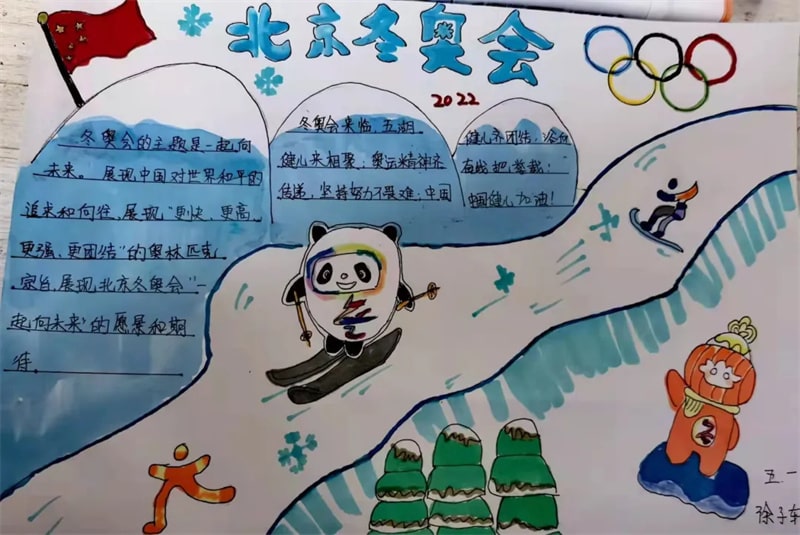 北京冬奥会
2022
冬奥会的主题是一起向
未来。展现中国对世界和平的
追求和向往,展现"更快、更高、
更强、更团结"的奥林匹克
宗旨,展现北京冬奥会"一
起向未来"的愿景和期
待。
冬奥会来临,五湖
健儿来相聚;奥运精神齐
传递,坚持努力不畏难;中国
健儿齐团结,冷兵
奋战把誉载!
中国健儿加油!
五一
徐子车